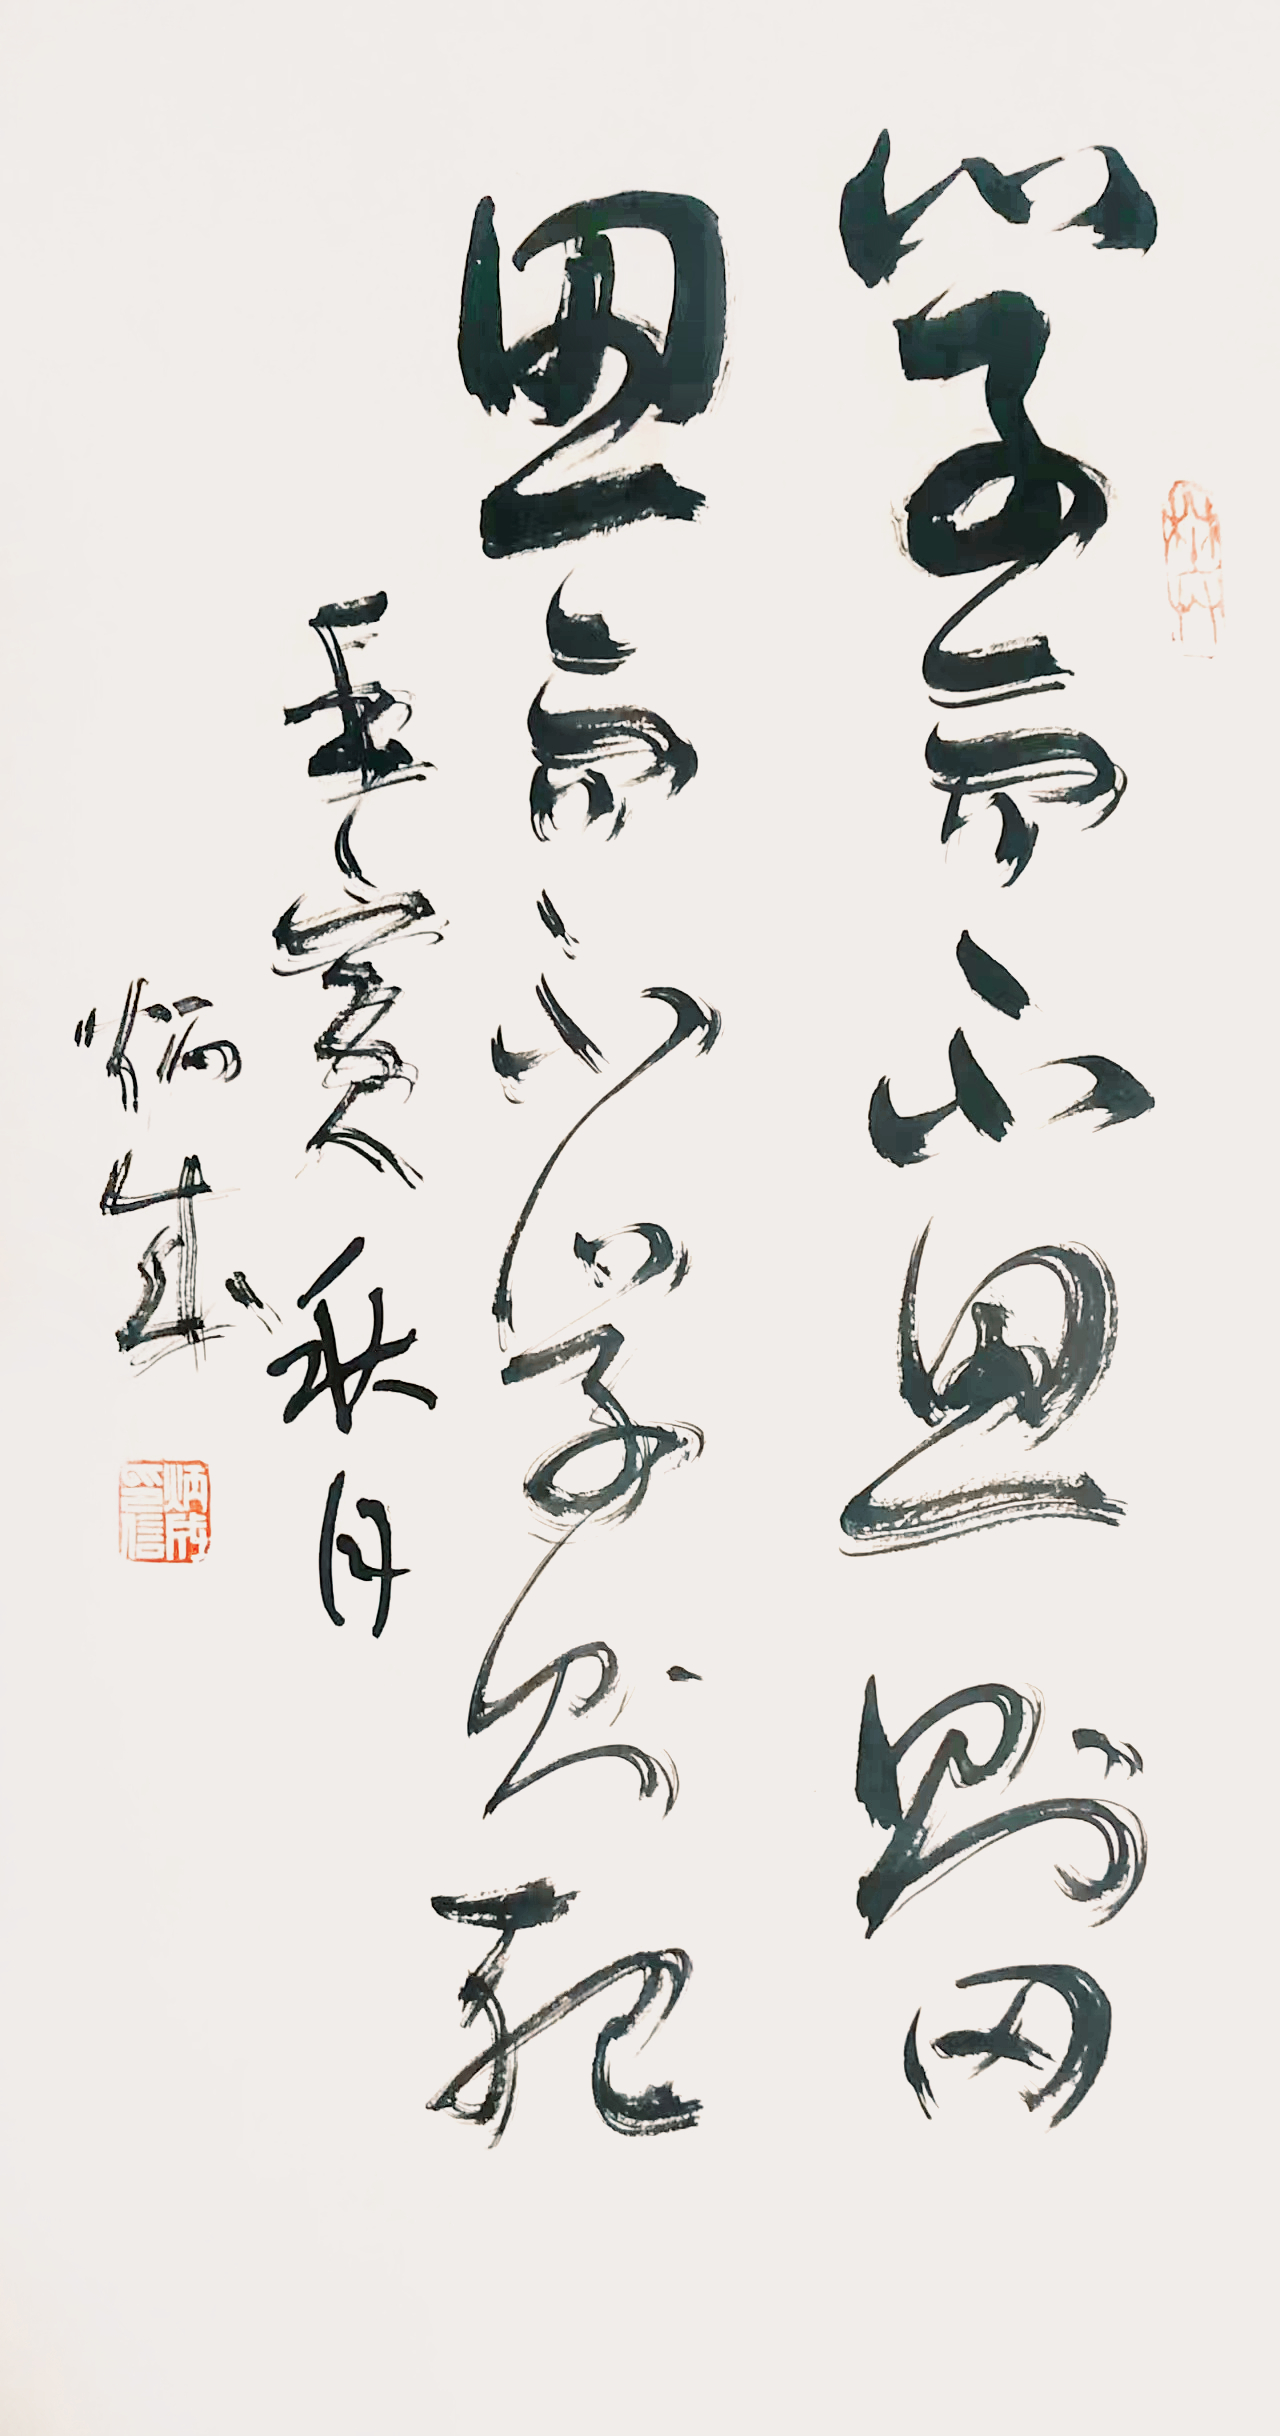 学而不思则罔
思而不学则殆
壬寅秋月
炳成
炳成
印信